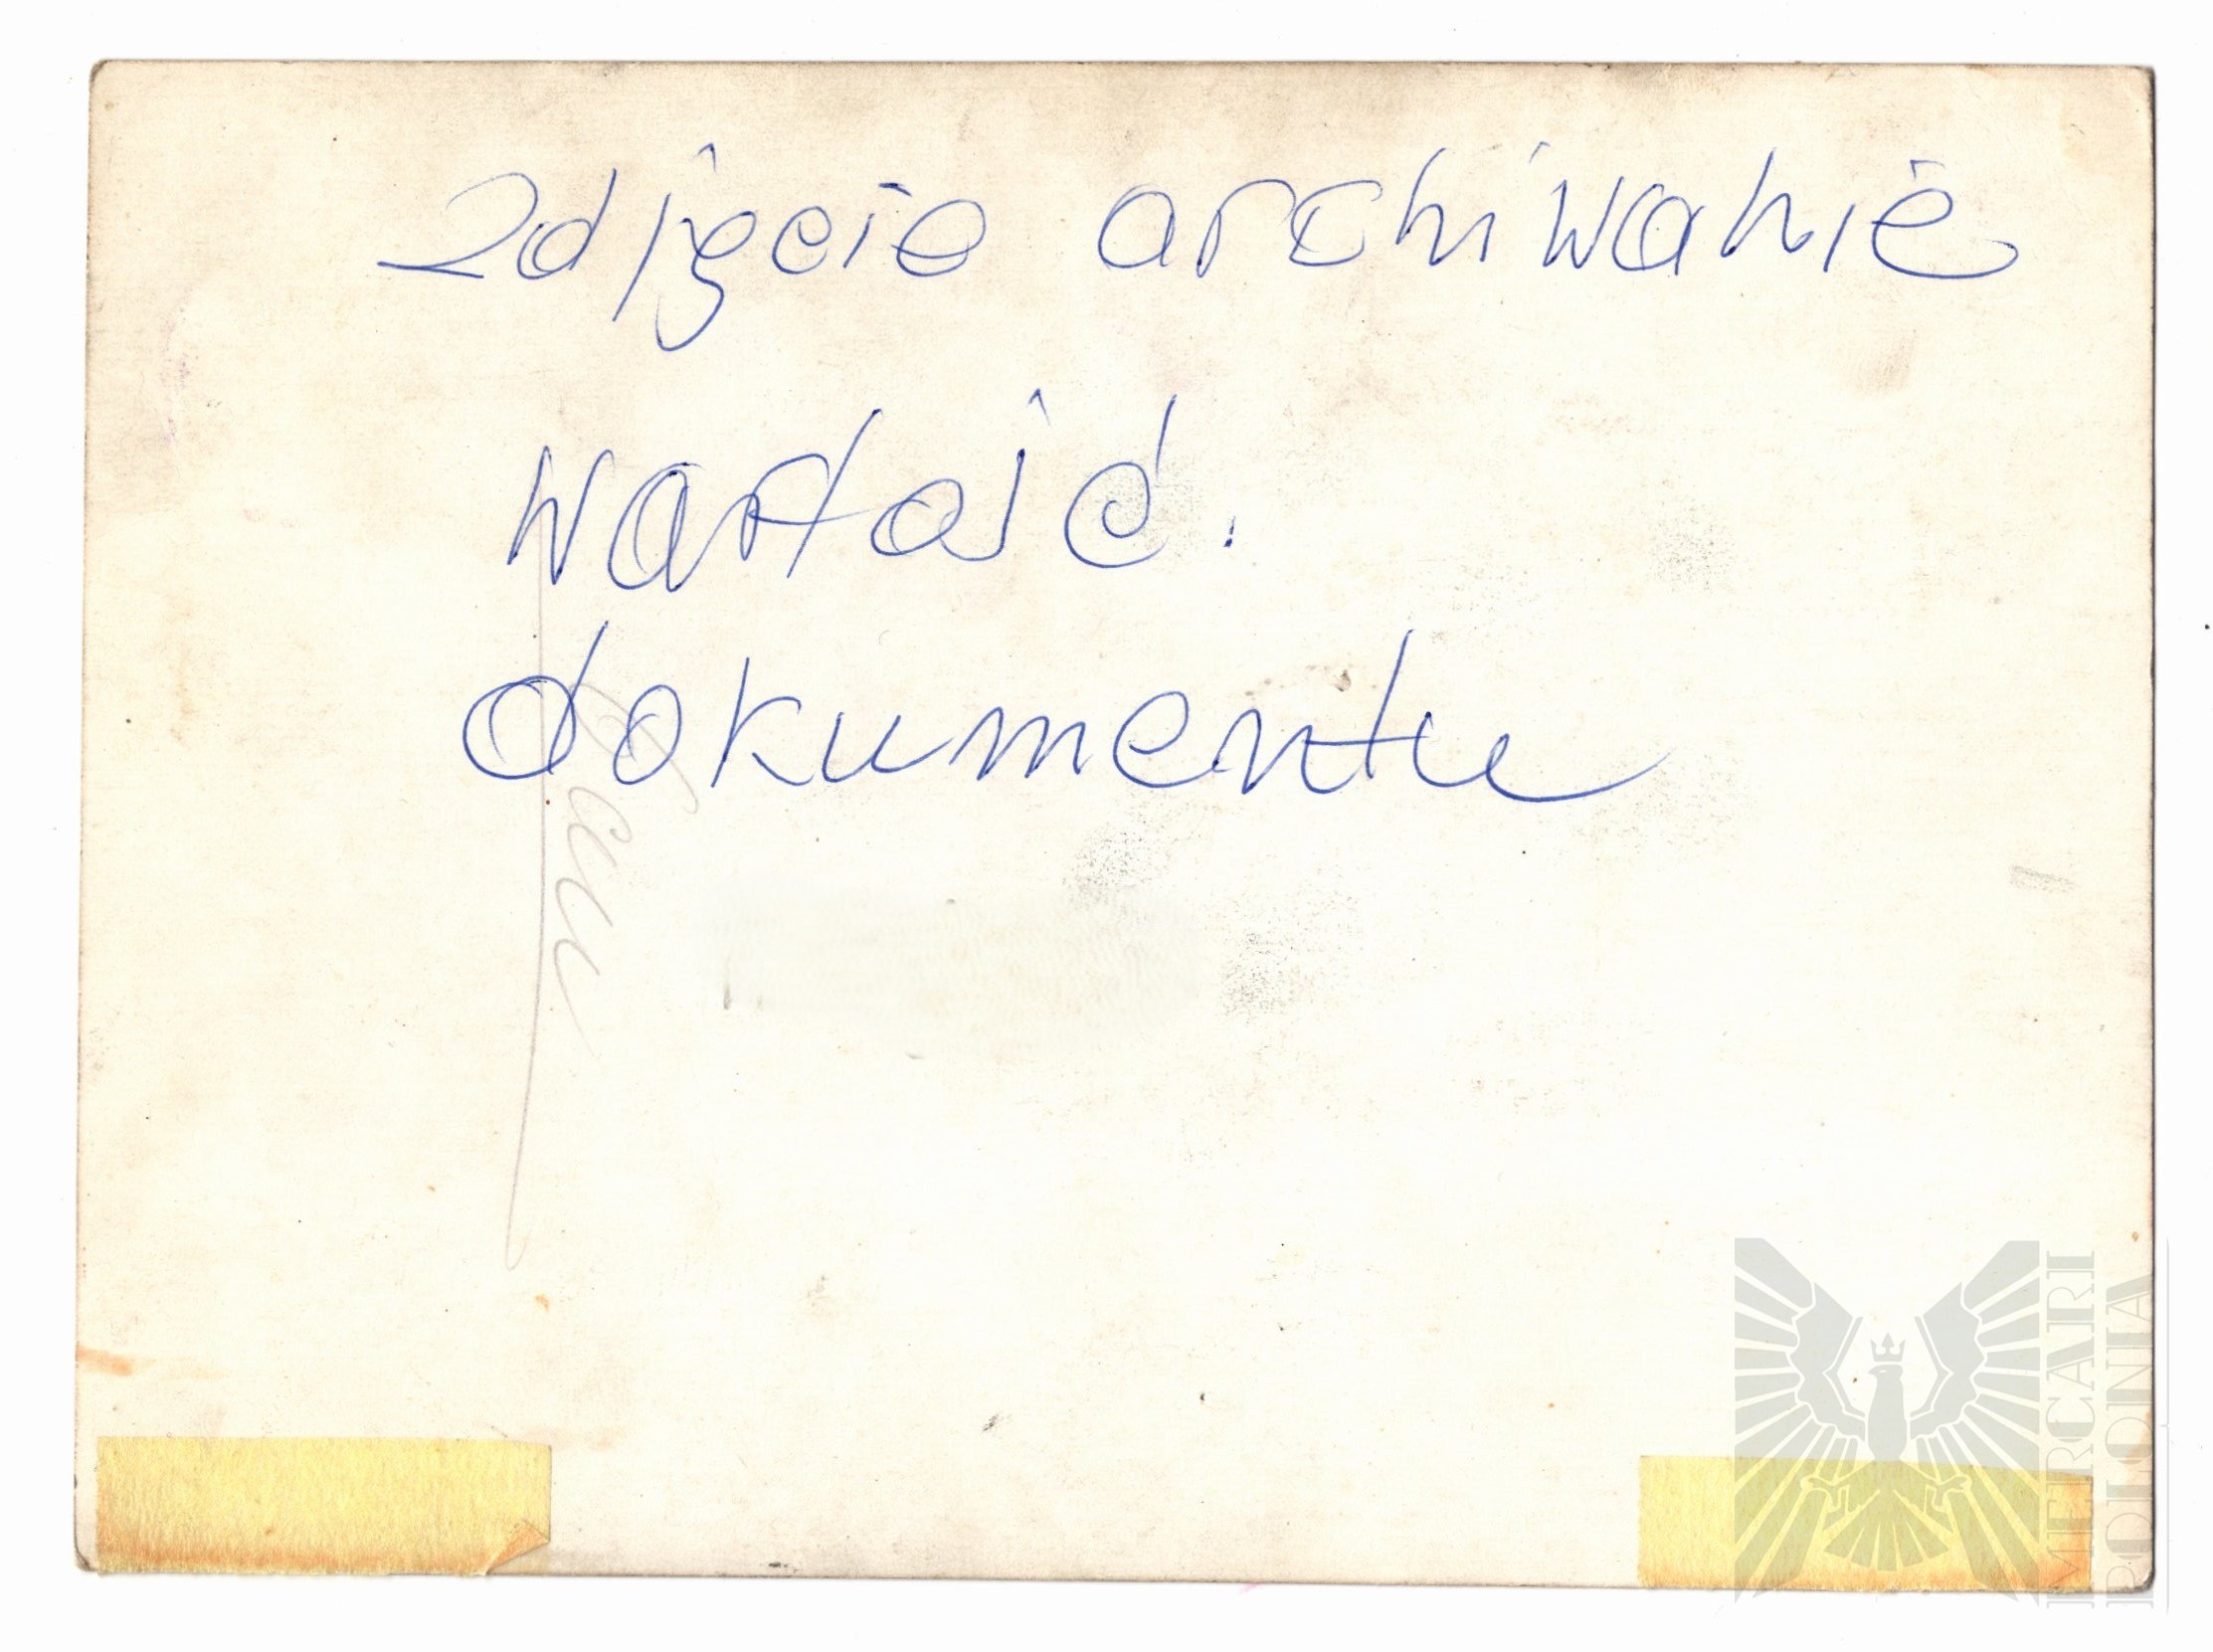 zdjęcie archiwanie
wartość.
dokumentu
MERCARI
POLONIA